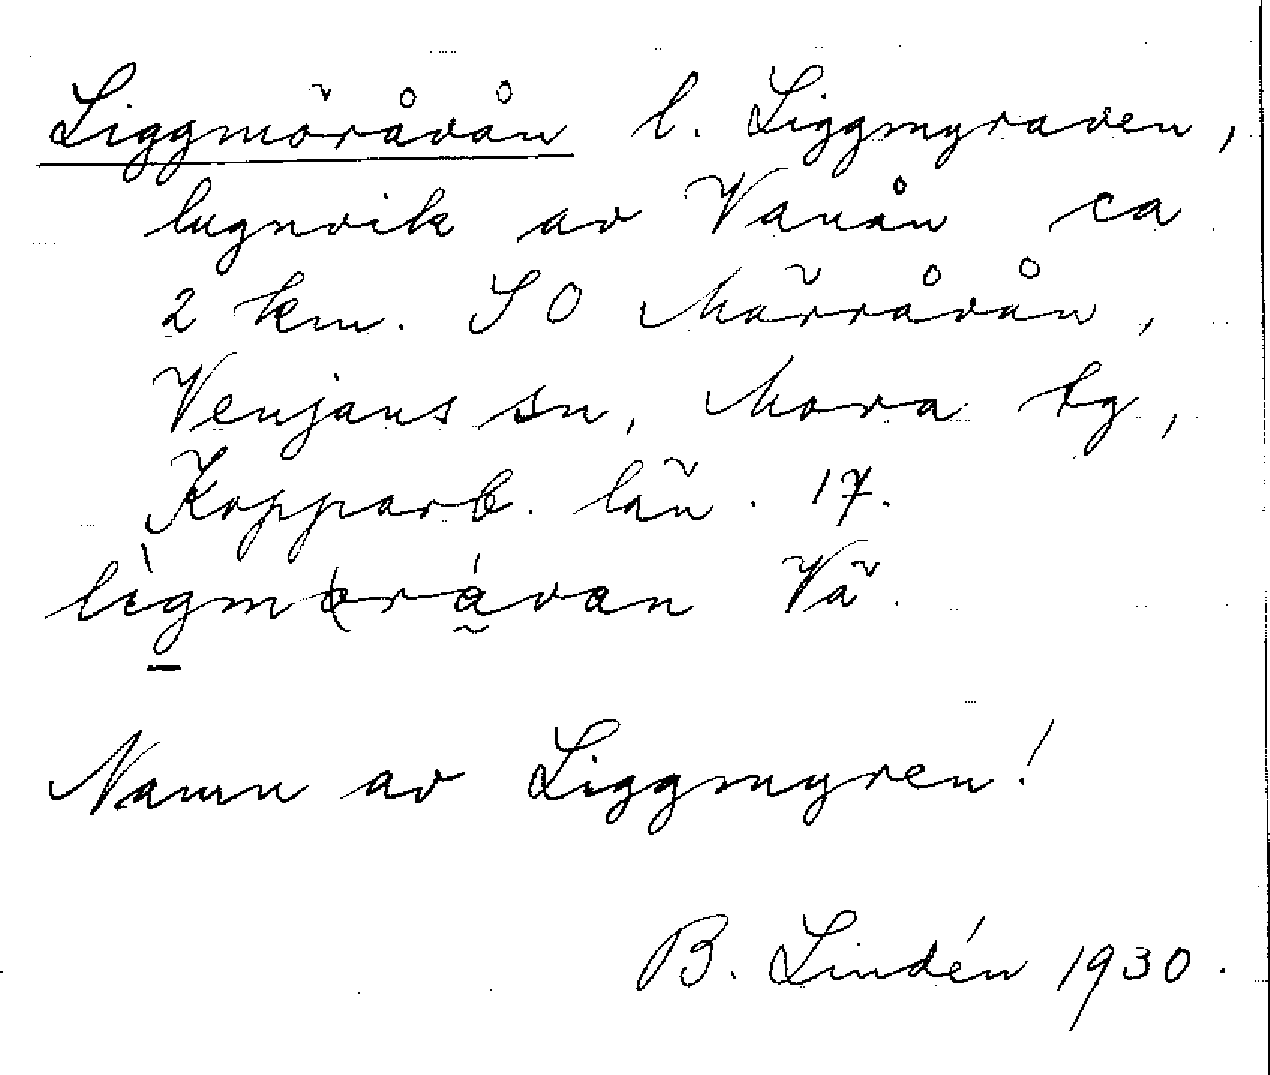 Liggmöråvån l. Liggmyraven,
lugnvik av Vanån ca
2 km. SO Mörråvån,
Venjans sn, Mora tg,
Kopparb. län. 17.
Vä.
Namn av Liggmyren!
B. Lindén 1930.